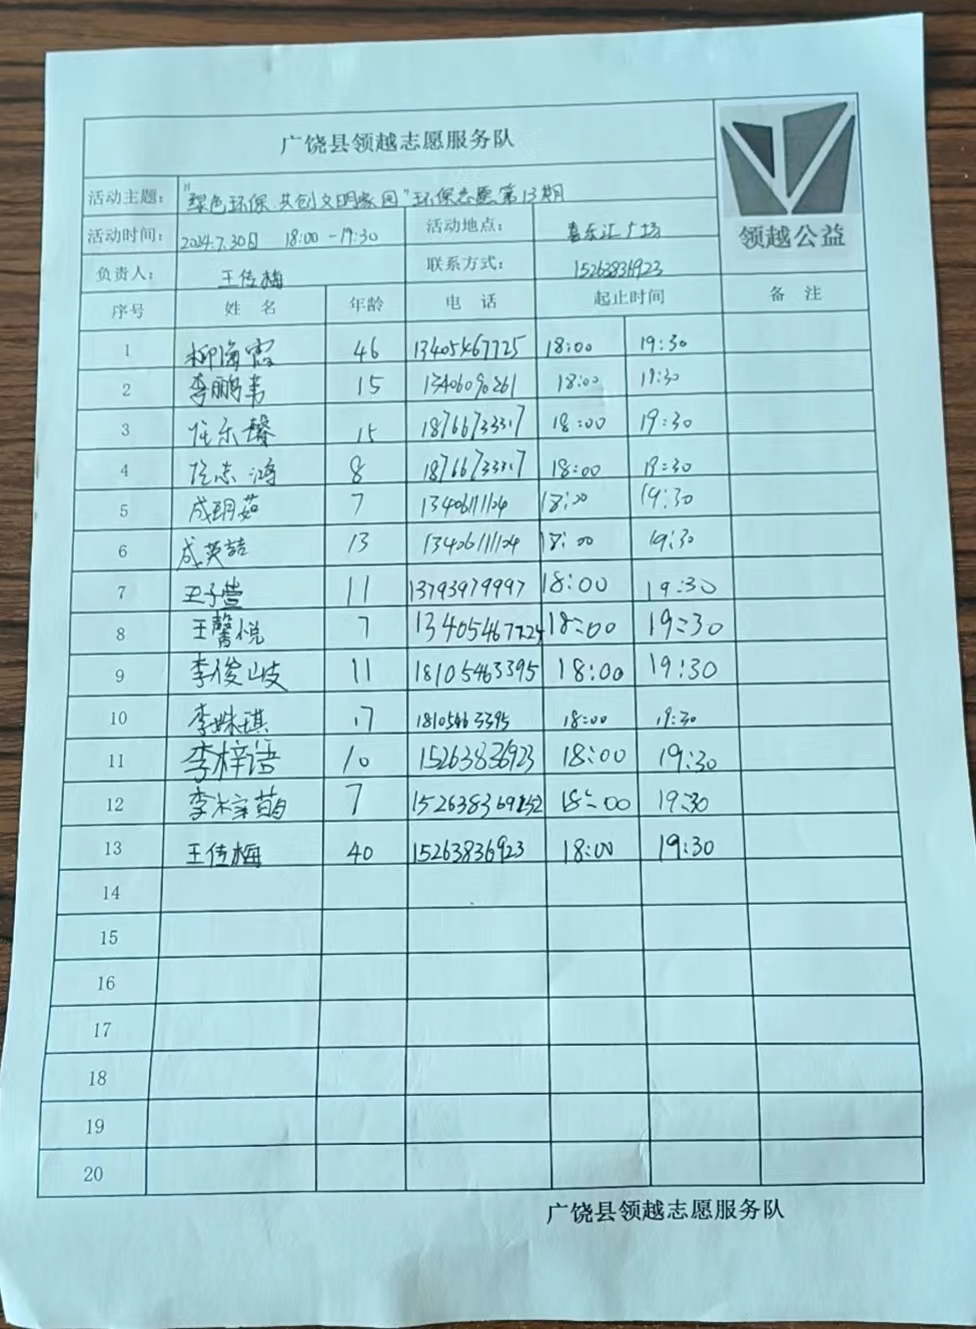 广饶县领越志愿服务队
领越公益
活动主题： "绿色环保 共创文明家园"环保志愿第13期
活动时间： 2024.7.30日 18:00-19:30 活动地点： 喜乐汇广场
负责人： 王传梅 联系方式： 15263836923
序号 姓 名 年龄 电 话 起止时间 备 注
1 柳海霞 46 13405467725 18:00 19:30
2 李鹏韦 15 13406090261 18:00 19:30
3 任乐馨 15 18766733317 18:00 19:30
4 任志鸿 8 18766733317 18:00 19:30
5 成玥茹 7 13406111104 18:00 19:30
6 成英喆 13 13406111104 18:00 19:30
7 王子萱 11 13793979997 18:00 19:30
8 王馨悦 7 18:00 19:30
9 李俊岐 11 18105463395 18:00 19:30
10 李姝琪 17 18105463395 18:00 19:30
11 李梓语 10 15263836923 18:00 19:30
12 7 18:00 19:30
13 王传梅 40 15263836923 18:00 19:30
14
15
16
17
18
19
20
广饶县领越志愿服务队